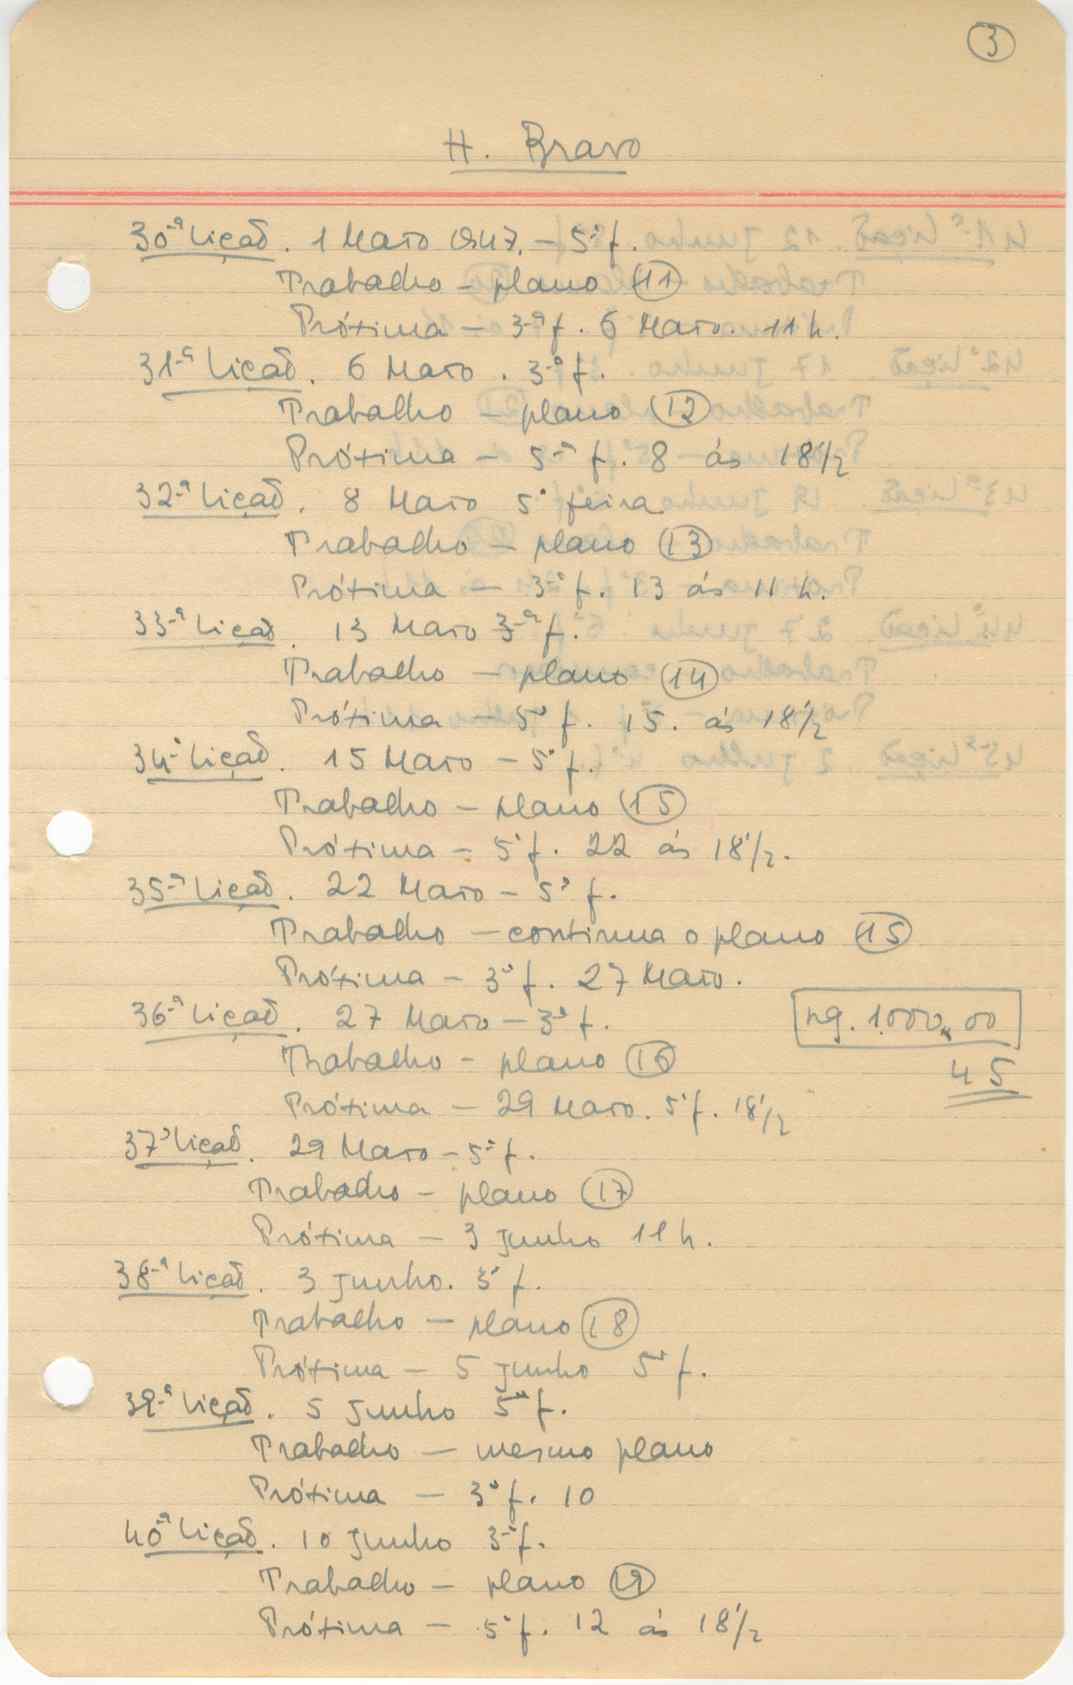 3
H. Bravo
30ª Lição. 1 Maio 1947. – 5ª f.
Trabalho – plano 11
Próxima – 3ª f. 6 Maio. 11 h.
31ª Lição. 6 Maio. 3ª f.
Trabalho – plano 12
Próxima – 5ª f. 8 ás 18 1/2
32ª Lição. 8 Maio 5ª feira
Trabalho – plano 13
Próxima – 3ª f. 13 ás 11 h.
33ª Lição. 13 Maio 3ª f.
Trabalho – plano 14
Próxima – 5ª f. 15. ás 18 1/2
34ª Lição. 15 Maio – 5ª f.
Trabalho – plano 15
Próxima – 5ª f. 22 ás 18 1/2.
35ª Lição. 22 Maio – 5ª f.
Trabalho – continua o plano 15
Próxima – 3ª f. 27 Maio.
36ª Lição. 27 Maio – 3ª f. pg. 1.000,00
Trabalho – plano 16 45
Próxima – 29 Maio. 5ª f. 18 1/2
37ª Lição. 29 Maio – 5ª f.
Trabalho – plano 17
Próxima – 3 junho 11 h.
38ª Lição. 3 junho. 3ª f.
Trabalho – plano 18
Próxima – 5 junho 5ª f.
39ª Lição. 5 junho 5ª f.
Trabalho – mesmo plano
Próxima – 3ª f. 10
40ª Lição. 10 junho 3ª f.
Trabalho – plano 19
Próxima – 5ª f. 12 ás 18 1/2